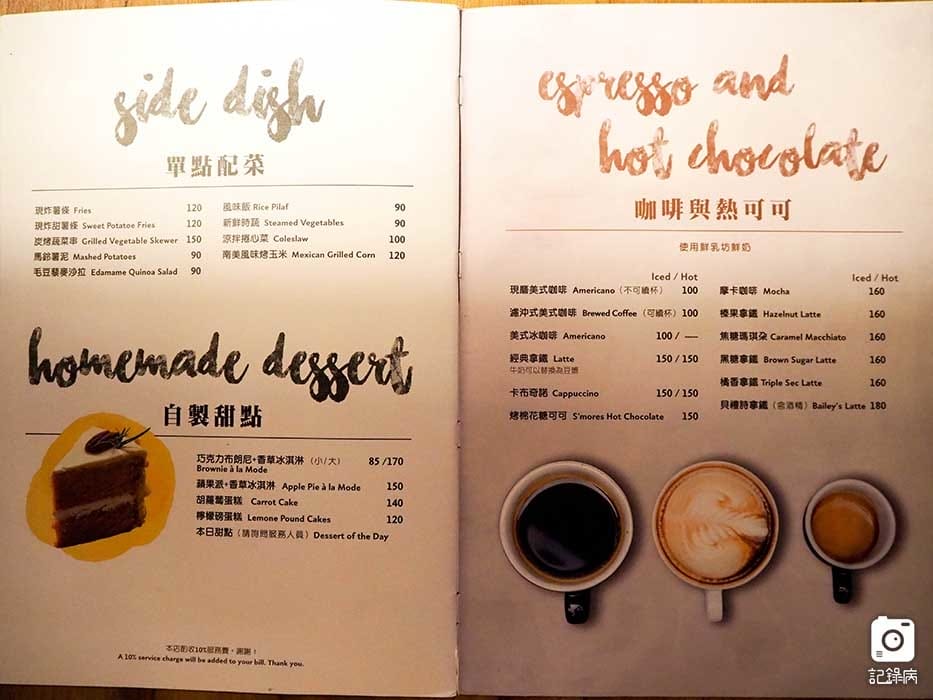 side dish
單點配菜
現炸薯條 Fries 120
現炸甜薯條 Sweet Potatoe Fries 120
炭烤蔬菜串 Grilled Vegetable Skewer 150
馬鈴薯泥 Mashed Potatoes 90
毛豆藜麥沙拉 Edamame Quinoa Salad 90
風味飯 Rice Pilaf 90
新鮮時蔬 Steamed Vegetables 90
涼拌捲心菜 Coleslaw 100
南美風味烤玉米 Mexican Grilled Corn 120
homemade dessert
自製甜點
巧克力布朗尼+香草冰淇淋 (小/大) 85/170
Brownie à la Mode
蘋果派+香草冰淇淋 Apple Pie à la Mode 150
胡蘿蔔蛋糕 Carrot Cake 140
檸檬磅蛋糕 Lemone Pound Cakes 120
本日甜點 (請詢問服務人員) Dessert of the Day
本店酌收10%服務費,謝謝!
A 10% service charge will be added to your bill. Thank you.
espresso and
hot chocolate
咖啡與熱可可
使用鮮乳坊鮮奶
Iced / Hot
現磨美式咖啡 Americano (不可續杯) 100
濾沖式美式咖啡 Brewed Coffee (可續杯) 100
美式冰咖啡 Americano 100 / —
經典拿鐵 Latte 150 / 150
牛奶可以替換為豆漿
卡布奇諾 Cappuccino 150 / 150
烤棉花糖可可 S'mores Hot Chocolate 150
Iced / Hot
摩卡咖啡 Mocha 160
榛果拿鐵 Hazelnut Latte 160
焦糖瑪琪朵 Caramel Macchiato 160
黑糖拿鐵 Brown Sugar Latte 160
橘香拿鐵 Triple Sec Latte 160
貝禮詩拿鐵 (含酒精) Bailey's Latte 180
記錄病